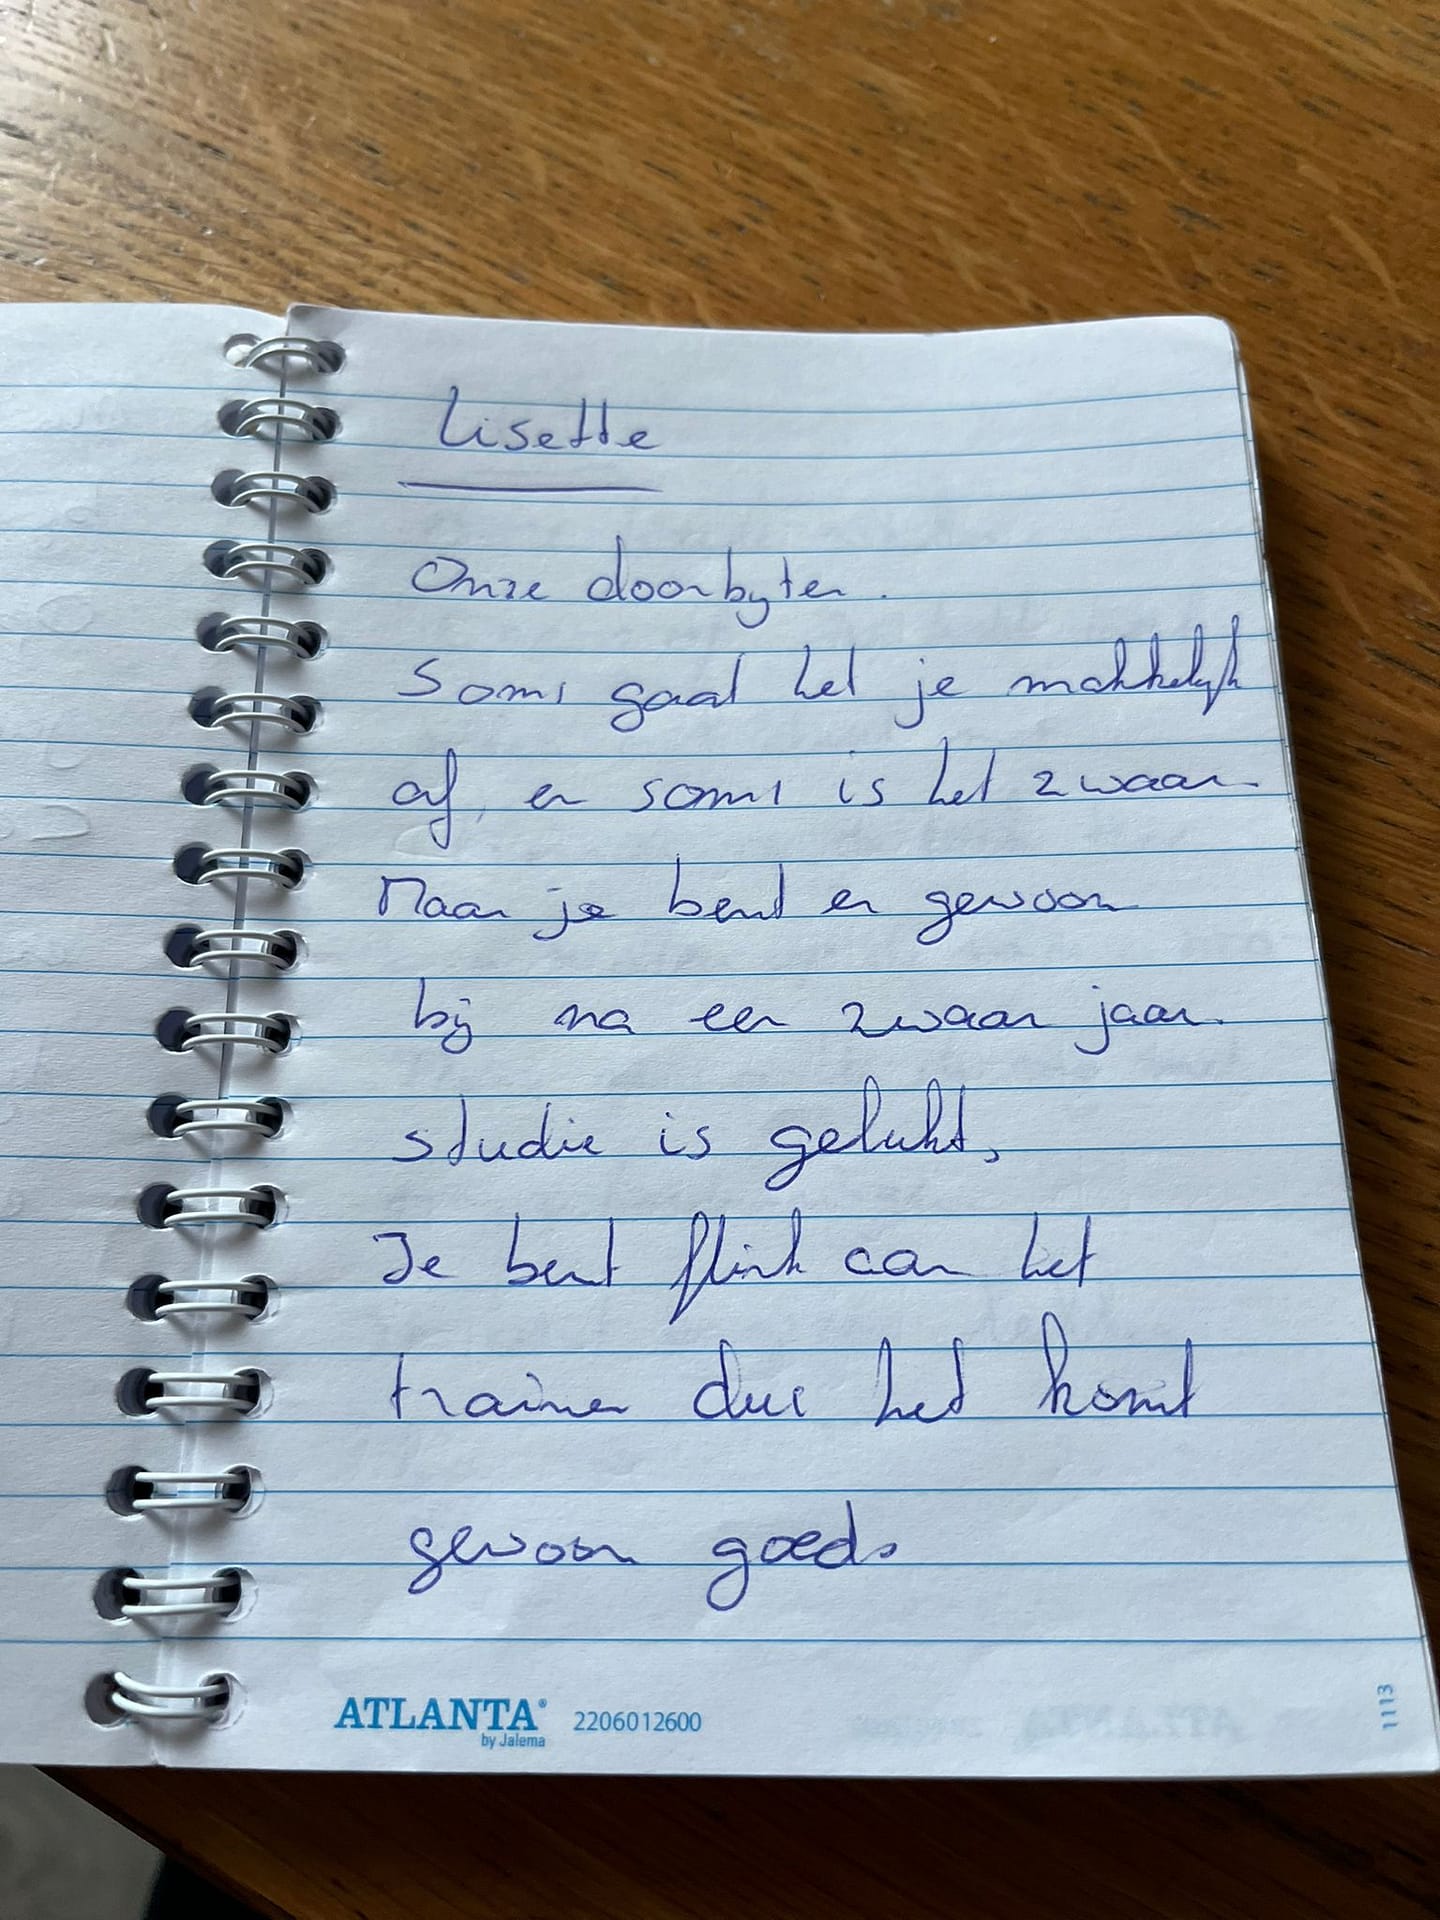 Lisette
Onze doorbyter.
Soms gaat het je makkelijk
af, en soms is het zwaar.
Maar je bent er gewoon
bij na een zwaar jaar.
studie is gelukt,
Je bent flink aan het
trainen dus het komt
gewoon goed.
ATLANTA®
by Jalema
2206012600
1113